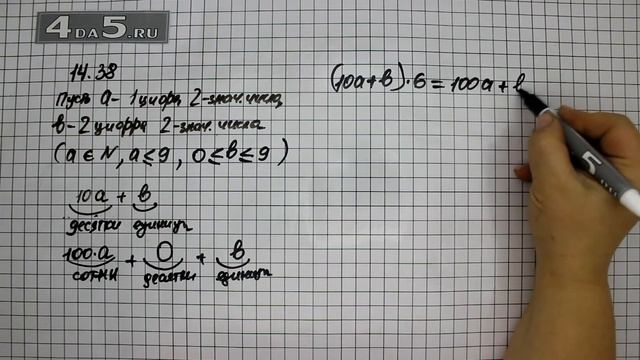 4DA5.RU
14.38
Пусть а - 1 цифра 2-знач. числа,
в - 2 цифра 2-знач. числа
(a ∈ N, a ≤ 9, 0 ≤ в ≤ 9)
10a + в
десятки единицы
100·a + 0 + в
сотни десятки единицы
(10a+в)·6 = 100a + в
5